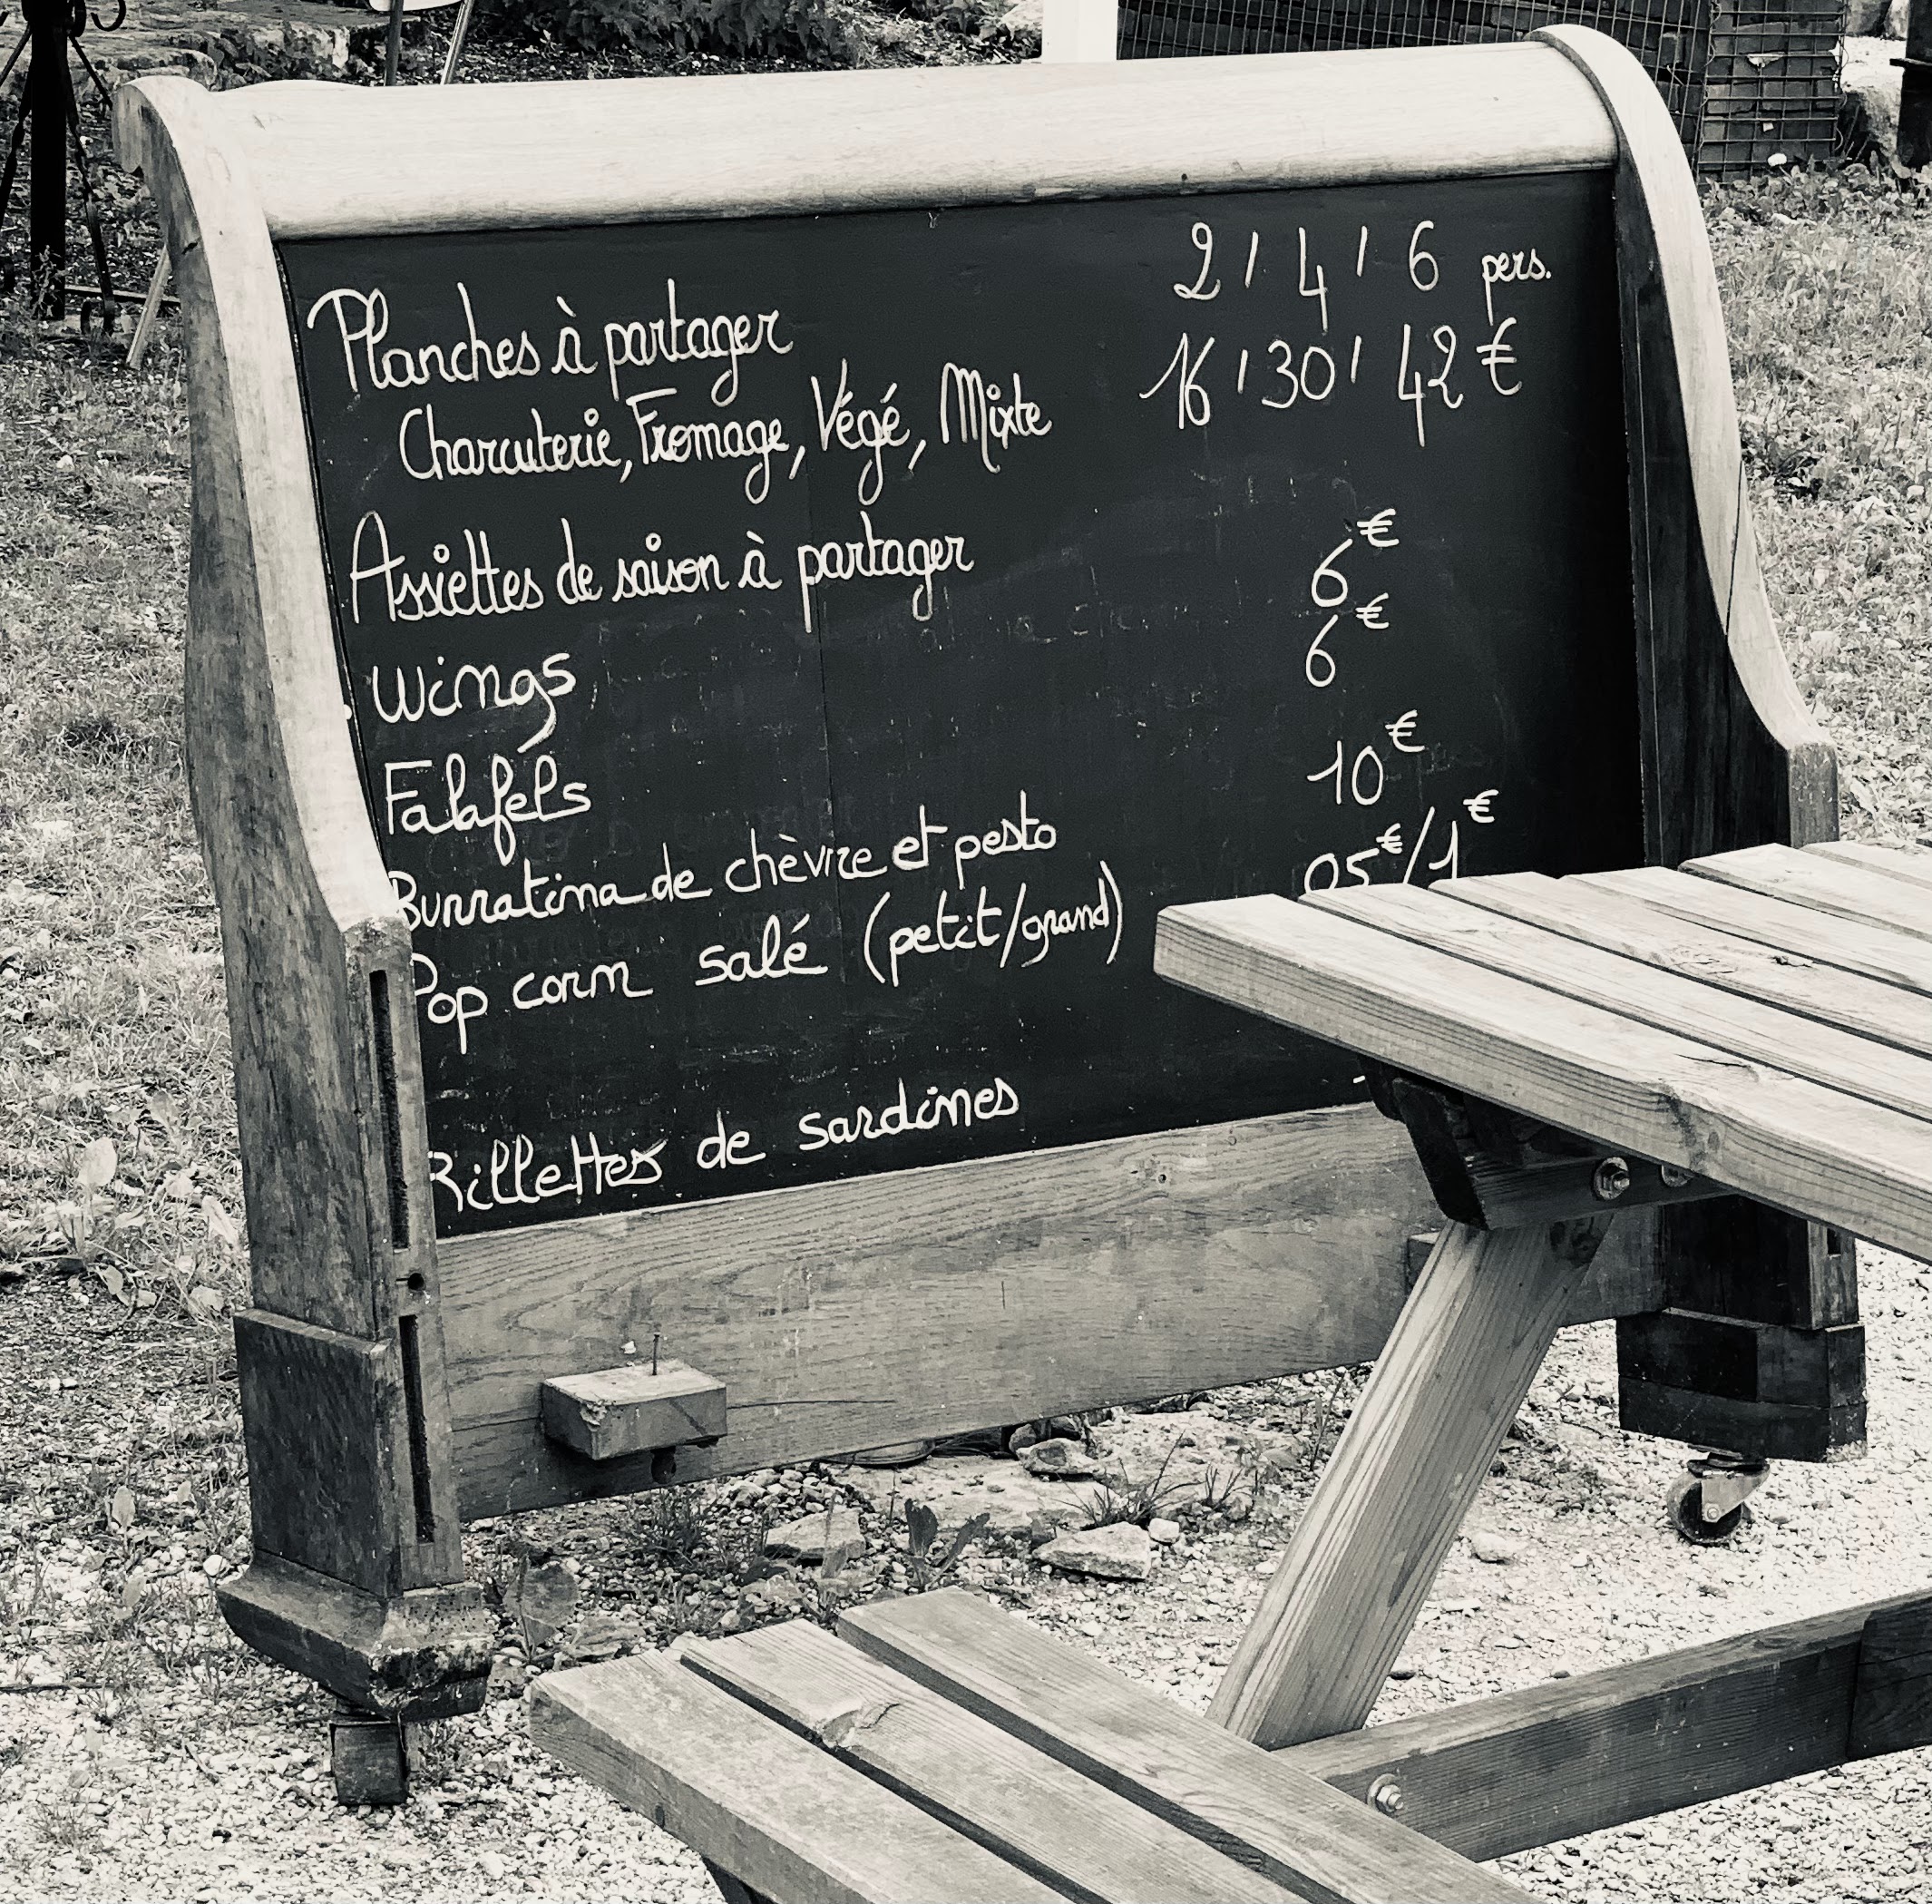 2 / 4 / 6 pers.
Planches à partager 16 / 30 / 42 €
Charcuterie, Fromage, Végé, Mixte
Assiettes de saison à partager
Wings 6€
Falafels 6€
Burratina de chèvre et pesto 10€
Pop corn salé (petit/grand) 05€/1€
Rillettes de sardines